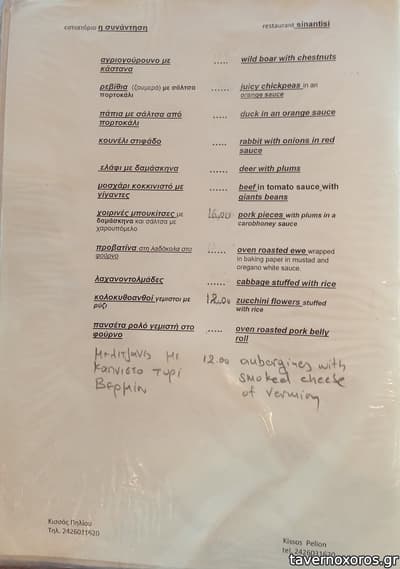 εστιατόριο η συνάντηση restaurant sinantisi
αγριογούρουνο με ..... wild boar with chestnuts
κάστανα
ρεβίθια (ζουμερά) με σάλτσα ...... juicy chickpeas in an
πορτοκάλι orange sauce
πάπια με σάλτσα από ..... duck in an orange sauce
πορτοκάλι
κουνέλι στιφάδο ..... rabbit with onions in red
sauce
ελάφι με δαμάσκηνα ..... deer with plums
μοσχάρι κοκκινιστό με ...... beef in tomato sauce with
γίγαντες giants beans
χοιρινές μπουκίτσες με 16,00 pork pieces with plums in a
δαμάσκηνα και σάλτσα με carobhoney sauce
χαρουπόμελο
προβατίνα στη λαδόκολα στο ...... oven roasted ewe wrapped
φούρνο in baking paper in mustad and
oregano white sauce.
λαχανοντολμάδες ...... cabbage stuffed with rice
κολοκυθοανθοί γεμιστοι με 12.00 zucchini flowers stuffed
ρύζι with rice
πανσέτα ρολό γεμιστή στο ..... oven roasted pork belly
φούρνο roll
Μελιτζάνες με 12.00 aubergines with
καπνιστο τυρί smoked cheese
Βερμίου of Vermiou
Κισσός Πηλίου Kissos Pelion
Τηλ. 2426031620 tel. 2426031620
tavernoxoros.gr